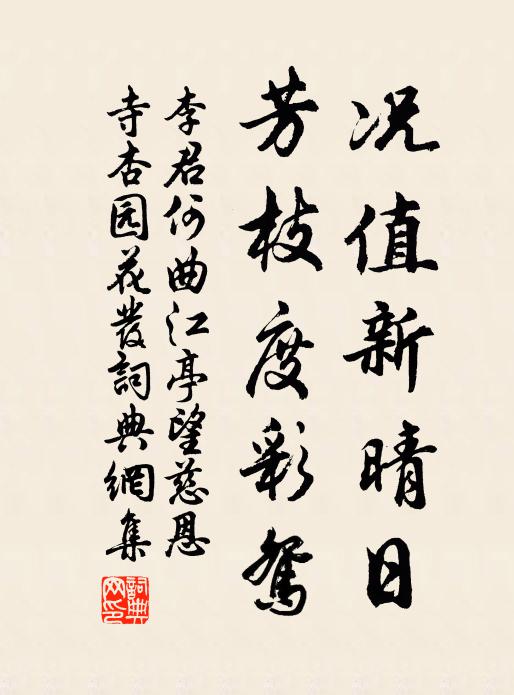 况值新晴日
芳枝度彩鸳
李君何曲江亭望慈恩
寺杏园花发詞典網集
詞典網印